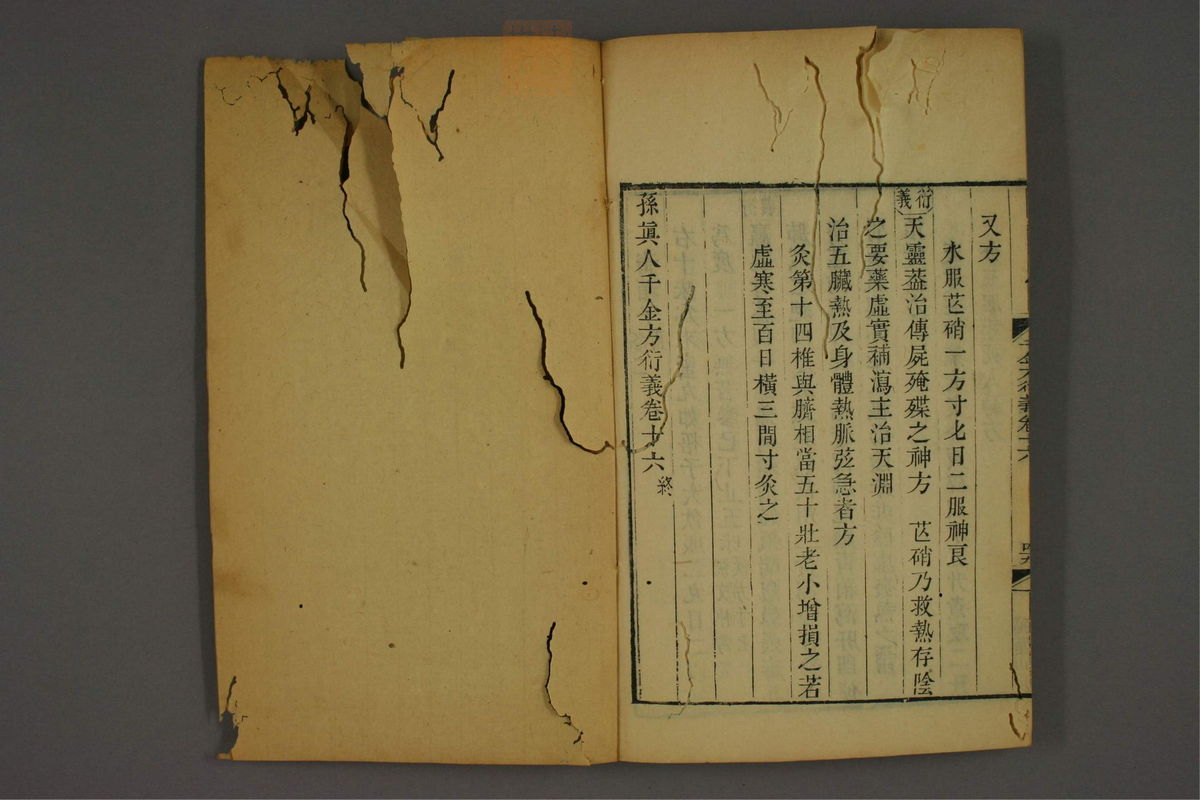 又方
水服芒硝一方寸匕日二服神良
衍義
天靈葢治傳屍殗殜之神方　芒硝乃救熱存陰
之要藥虛實補瀉主治天淵
治五臟熱及身體熱脈弦急者方
灸第十四椎與臍相當五十壯老小增損之若
虛寒至百日橫三間寸灸之
孫眞人千金方衍義卷十六終